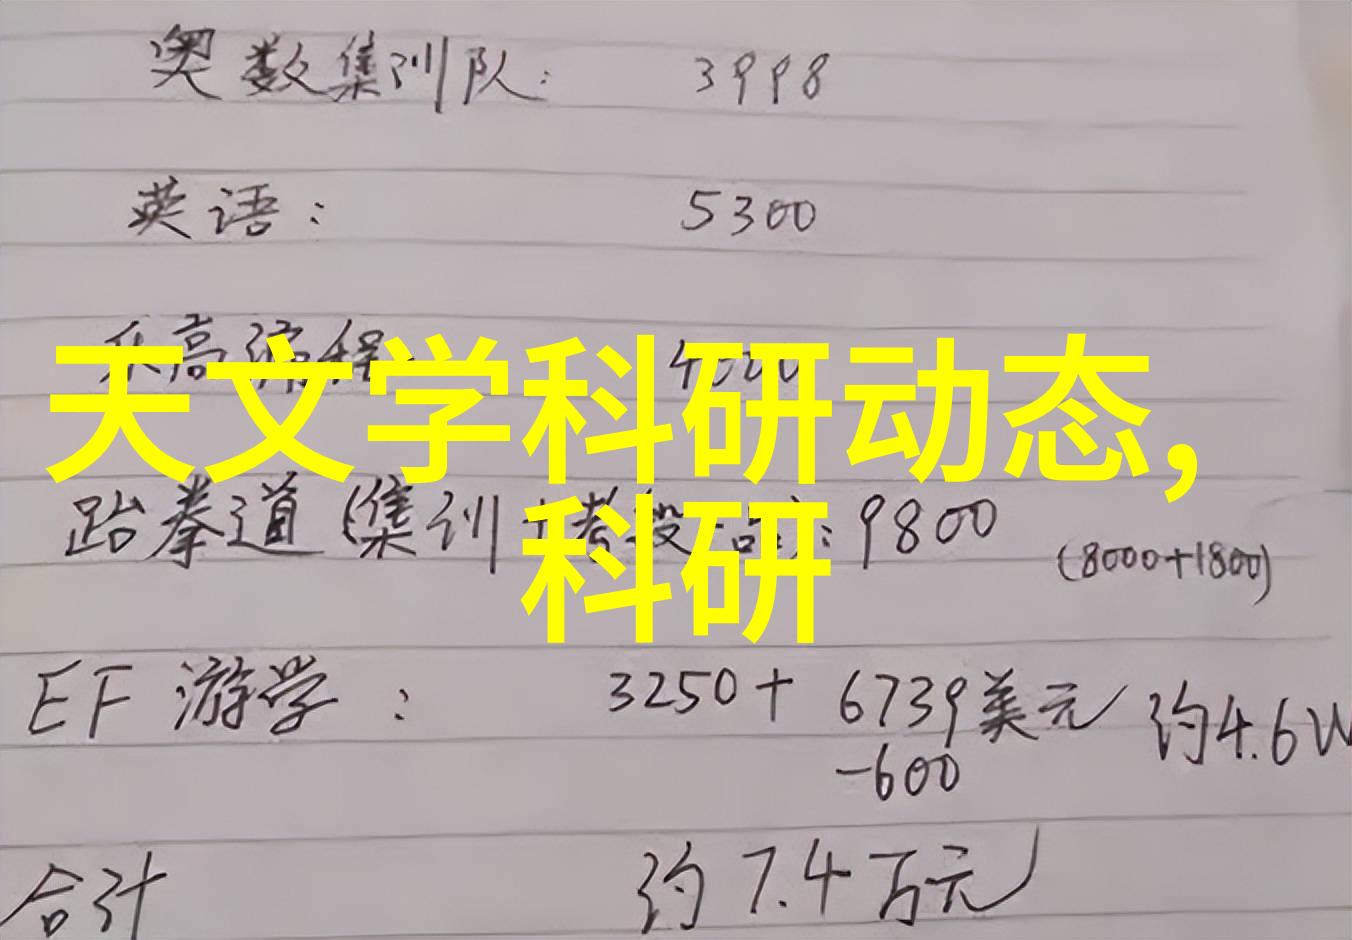 奥数集训队: 3998
英语: 5300
乐高编程 4000
天文学科研动态,
跆拳道(集训+考段 : 9800 (8000+1800)
科研
EF 游学: 3250+ 6739美元 约4.6W
-600
合计 约7.4万元